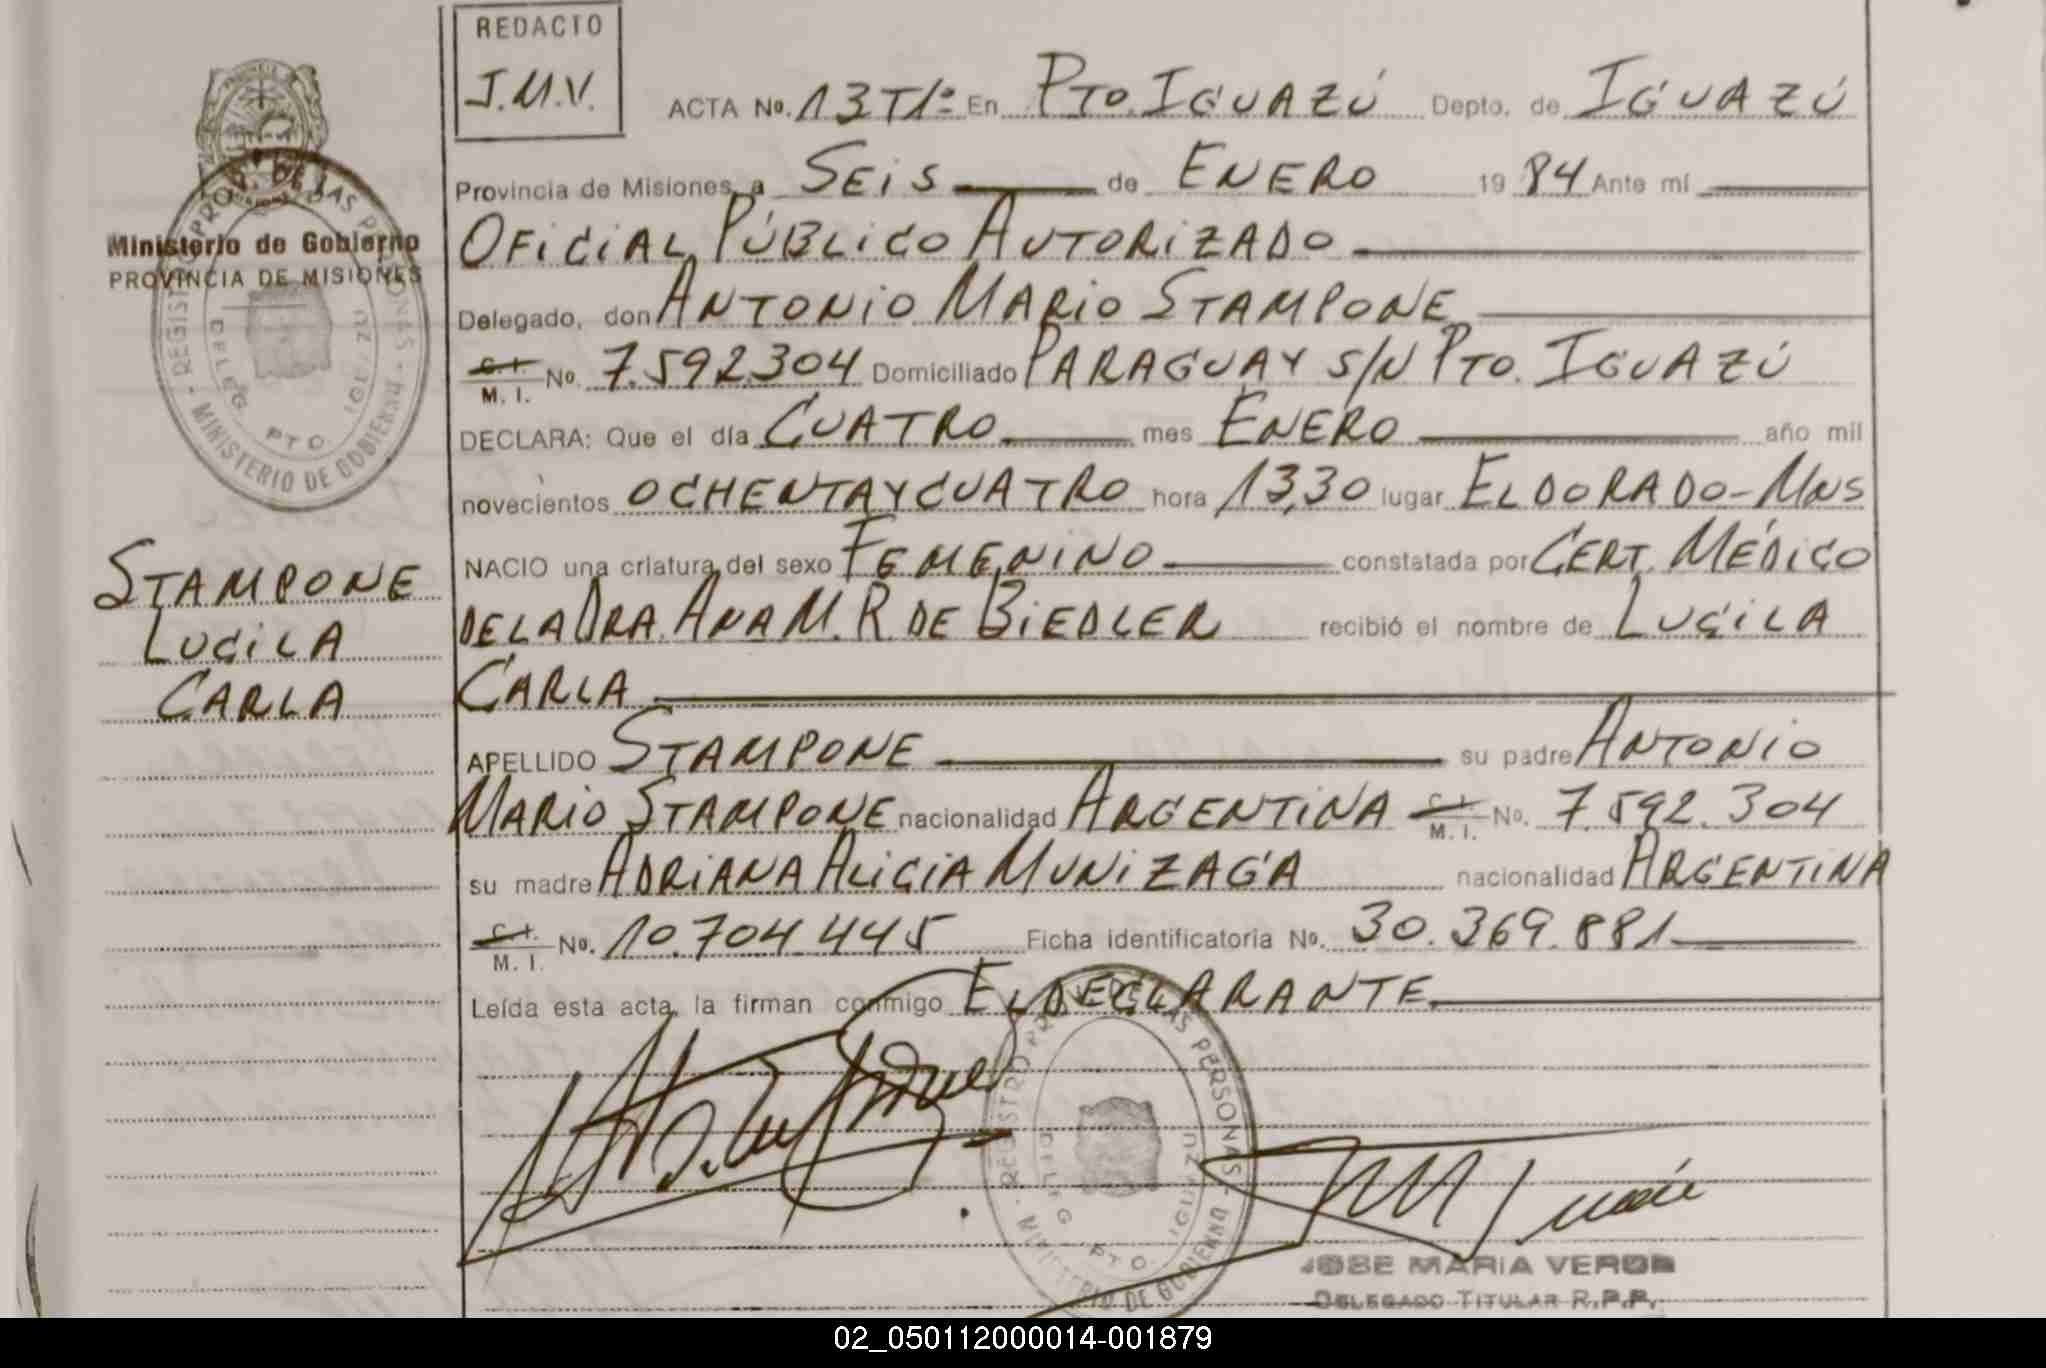 REDACTO
J.M.V.
ACTA No. 13 T1º En PTO. IGUAZÚ Depto. de IGUAZÚ
Provincia de Misiones, a SEIS de ENERO 1984 Ante mí
OFICIAL PÚBLICO AUTORIZADO
Delegado, don ANTONIO MARIO STAMPONE
C. I. M. I. No. 7.592.304 Domiciliado PARAGUAY S/N PTO. IGUAZÚ
DECLARA: Que el día CUATRO mes ENERO año mil
novecientos OCHENTA Y CUATRO hora 13,30 lugar ELDORADO-MNS
NACIO una criatura del sexo FEMENINO constatada por CERT. MÉDICO
DE LA DRA. ANA M. R. DE BIEDLER recibió el nombre de LUCILA
CARLA
APELLIDO STAMPONE su padre ANTONIO
MARIO STAMPONE nacionalidad ARGENTINA C. I. M. I. No. 7.592.304
su madre ADRIANA ALICIA MUNIZAGA nacionalidad ARGENTINA
C. I. M. I. No. 10.704.445 Ficha identificatoria No. 30.369.881
Leída esta acta, la firman conmigo EL DECLARANTE
Ministerio de Gobierno
PROVINCIA DE MISIONES
REGISTRO PROV. DE LAS PERSONAS
MINISTERIO DE GOBIERNO
DELEG. PTO. IGUAZU
STAMPONE
LUCILA
CARLA
REGISTRO PROV. DE LAS PERSONAS
MINISTERIO DE GOBIERNO
DELEG. PTO. IGUAZU
JOSE MARIA VERON
DELEGADO TITULAR R.P.P.
02_050112000014-001879